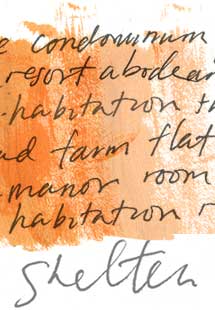 e condominium
resort abode an
habitation th
ad farm flat
manor room
habitation r
shelter